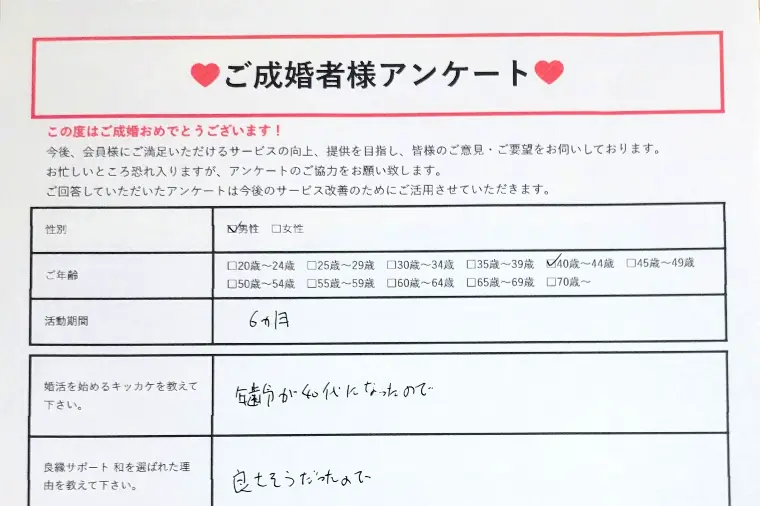 ♥ご成婚者様アンケート♥
この度はご成婚おめでとうございます！
今後、会員様にご満足いただけるサービスの向上、提供を目指し、皆様のご意見・ご要望をお伺いしております。
お忙しいところ恐れ入りますが、アンケートのご協力をお願い致します。
ご回答していただいたアンケートは今後のサービス改善のためにご活用させていただきます。
性別
☑男性 □女性
ご年齢
□20歳～24歳 □25歳～29歳 □30歳～34歳 □35歳～39歳 ☑40歳～44歳 □45歳～49歳
□50歳～54歳 □55歳～59歳 □60歳～64歳 □65歳～69歳 □70歳～
活動期間
6か月
婚活を始めるキッカケを教えて
下さい。
年齢が40代になったので
良縁サポート 和を選ばれた理
由を教えて下さい。
良さそうだったので